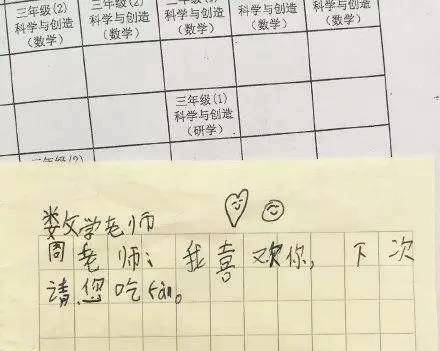 三年级(2)
科学与创造
(数学)
三年级(2)
科学与创造
(数学)
科学与创造
(数学)
科学与创造
(数学)
科学与创造
(数学)
三年级(1)
科学与创造
(研学)
三年级(2)
数学老师
周老师：我喜欢你，下次
请您吃fàn。